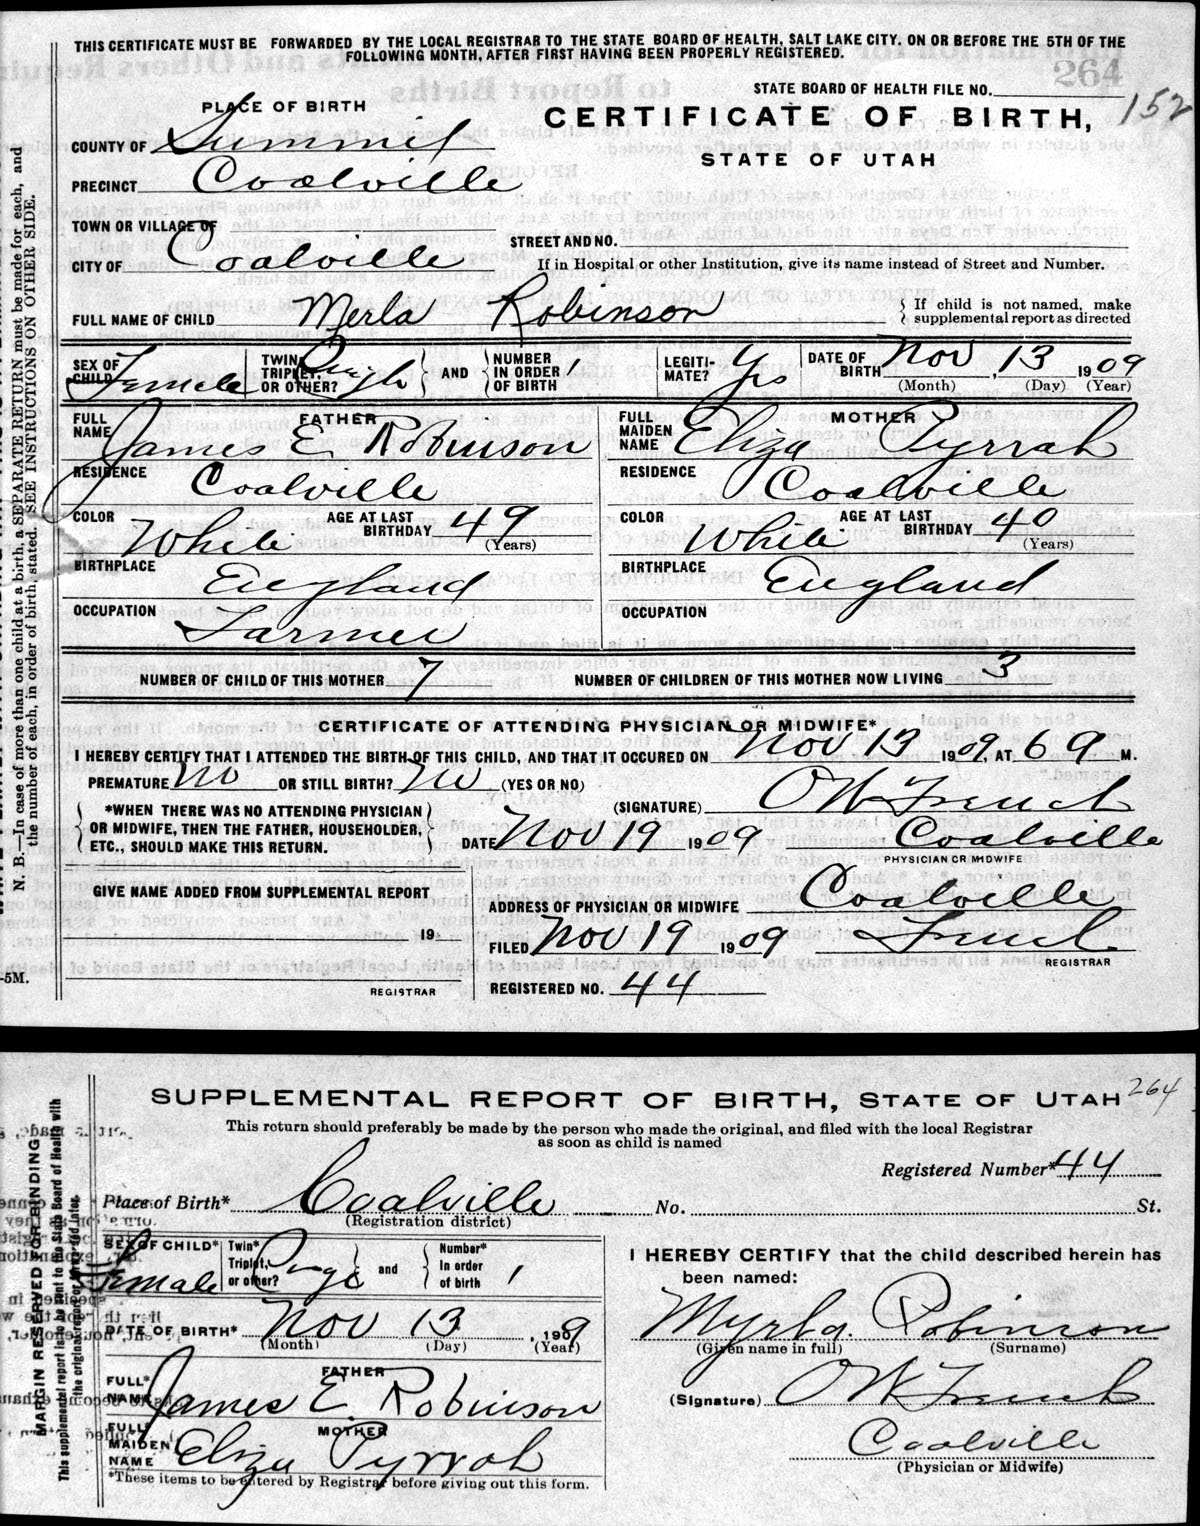 THIS CERTIFICATE MUST BE FORWARDED BY THE LOCAL REGISTRAR TO THE STATE BOARD OF HEALTH, SALT LAKE CITY. ON OR BEFORE THE 5TH OF THE
FOLLOWING MONTH, AFTER FIRST HAVING BEEN PROPERLY REGISTERED.
264
STATE BOARD OF HEALTH FILE NO.
152
PLACE OF BIRTH
CERTIFICATE OF BIRTH,
STATE OF UTAH
COUNTY OF Summit
PRECINCT Coalville
TOWN OR VILLAGE OF
CITY OF Coalville
STREET AND NO.
If in Hospital or other Institution, give its name instead of Street and Number.
FULL NAME OF CHILD Merla Robinson { If child is not named, make
supplemental report as directed
SEX OF CHILD Female TWIN, TRIPLET, OR OTHER? Single } AND { NUMBER IN ORDER OF BIRTH 1 LEGITI-MATE? Yes DATE OF BIRTH Nov, 13 1909
(Month) (Day) (Year)
FATHER
FULL NAME James E Robinson
RESIDENCE Coalville
COLOR White AGE AT LAST BIRTHDAY 49 (Years)
BIRTHPLACE England
OCCUPATION Farmer
MOTHER
FULL MAIDEN NAME Eliza Pyrrah
RESIDENCE Coalville
COLOR White AGE AT LAST BIRTHDAY 40 (Years)
BIRTHPLACE England
OCCUPATION
NUMBER OF CHILD OF THIS MOTHER 7 NUMBER OF CHILDREN OF THIS MOTHER NOW LIVING 3
CERTIFICATE OF ATTENDING PHYSICIAN OR MIDWIFE*
I HEREBY CERTIFY THAT I ATTENDED THE BIRTH OF THIS CHILD, AND THAT IT OCCURED ON Nov 13 1909, AT 6 a M.
PREMATURE No OR STILL BIRTH? No (YES OR NO)
(SIGNATURE) O W French
*WHEN THERE WAS NO ATTENDING PHYSICIAN
OR MIDWIFE, THEN THE FATHER, HOUSEHOLDER,
ETC., SHOULD MAKE THIS RETURN.
DATE Nov 19 1909 Coalville
PHYSICIAN OR MIDWIFE
GIVE NAME ADDED FROM SUPPLEMENTAL REPORT
19
REGISTRAR
ADDRESS OF PHYSICIAN OR MIDWIFE Coalville
FILED Nov 19 1909 French
REGISTRAR
REGISTERED NO. 44
N. B.—In case of more than one child at a birth, a SEPARATE RETURN must be made for each, and
the number of each, in order of birth, stated. (SEE INSTRUCTIONS ON OTHER SIDE.
-5M.
SUPPLEMENTAL REPORT OF BIRTH, STATE OF UTAH
264
This return should preferably be made by the person who made the original, and filed with the local Registrar
as soon as child is named
Registered Number* 44
Place of Birth* Coalville No. St.
(Registration district)
SEX OF CHILD* Female Twin* Triplet, or other? } and { Number* In order of birth 1
DATE OF BIRTH* Nov 13, 1909
(Month) (Day) (Year)
FATHER
FULL* NAME James E Robinson
MOTHER
FULL MAIDEN NAME Eliza Pyrrah
*These items to be entered by Registrar before giving out this form.
I HEREBY CERTIFY that the child described herein has
been named:
Myrla. Robinson
(Given name in full) (Surname)
(Signature) O W French
Coalville
(Physician or Midwife)
MARGIN RESERVED FOR BINDING
This supplemental report is to be sent to the State Board of Health with
the original report or if received later.